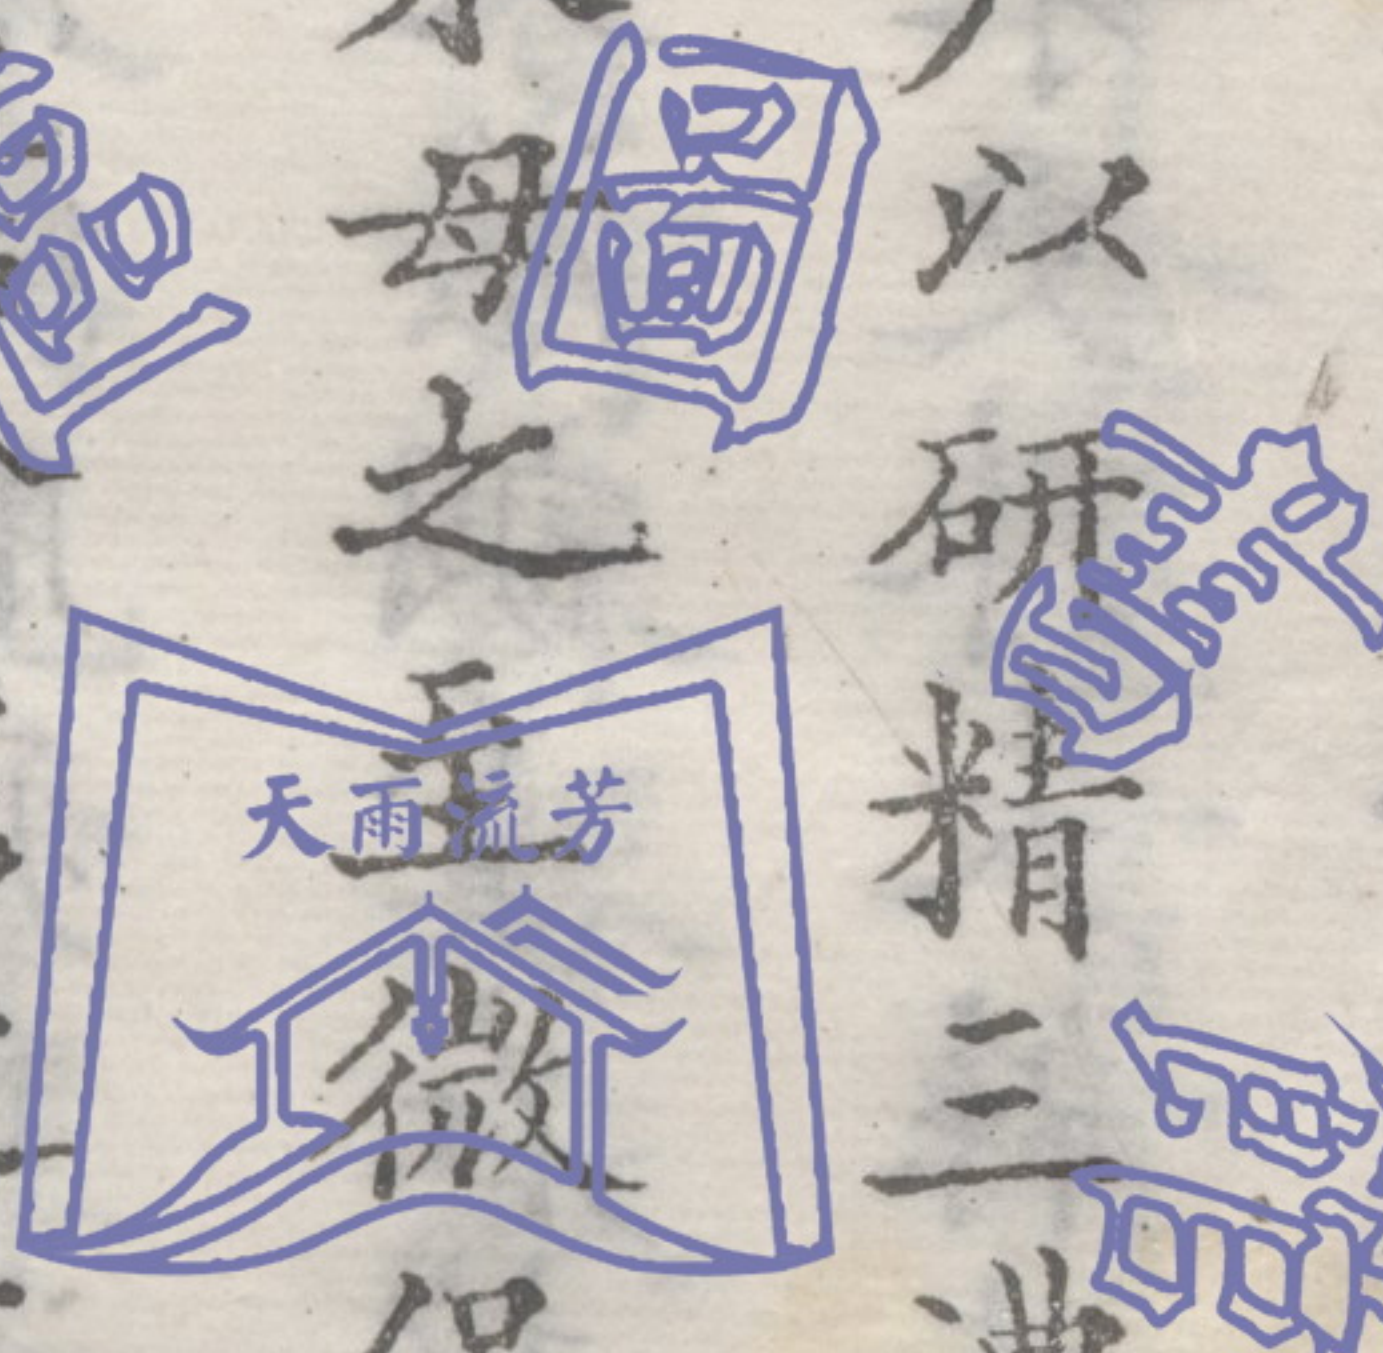 以研精三
母之至微
圖
書
天雨流芳